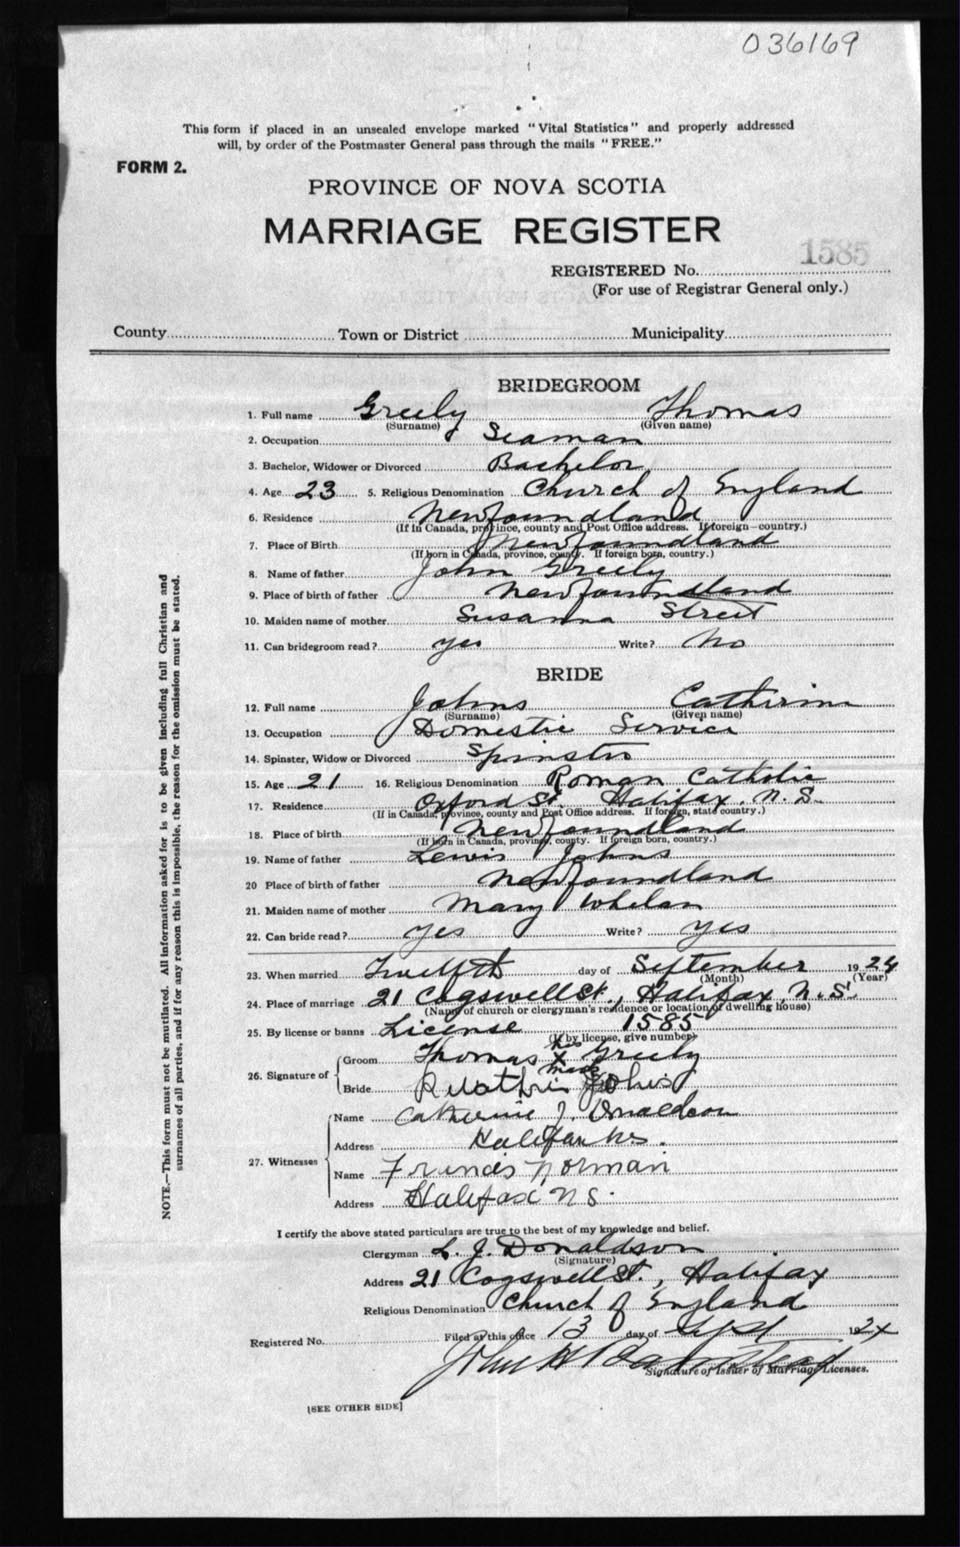 036169
This form if placed in an unsealed envelope marked "Vital Statistics" and properly addressed
will, by order of the Postmaster General pass through the mails "FREE."
FORM 2.
PROVINCE OF NOVA SCOTIA
MARRIAGE REGISTER
REGISTERED No. 1585
(For use of Registrar General only.)
County Town or District Municipality
BRIDEGROOM
1. Full name Greely Thomas
(Surname) (Given name)
2. Occupation Seaman
3. Bachelor, Widower or Divorced Bachelor
4. Age 23 5. Religious Denomination Church of England
6. Residence Newfoundland
(If in Canada, province, county and Post Office address. If foreign—country.)
7. Place of Birth Newfoundland
(If born in Canada, province, county. If foreign born, country.)
8. Name of father John Greely
9. Place of birth of father Newfoundland
10. Maiden name of mother Susanna Street
11. Can bridegroom read? yes Write? No
BRIDE
12. Full name Johns Catherine
(Surname) (Given name)
13. Occupation Domestic Service
14. Spinster, Widow or Divorced Spinster
15. Age 21 16. Religious Denomination Roman Catholic
17. Residence Oxford St. Halifax, N.S.
(If in Canada, province, county and Post Office address. If foreign, state country.)
18. Place of birth Newfoundland
(If born in Canada, province, county. If foreign born, country.)
19. Name of father Lewis Johns
20 Place of birth of father Newfoundland
21. Maiden name of mother Mary Whelan
22. Can bride read? yes Write? yes
23. When married Twelfth day of September 1924
(Month) (Year)
24. Place of marriage 21 Cogswell St., Halifax, N.S.
(Name of church or clergyman's residence or location of dwelling house)
25. By license or banns License 1585
(If by license, give number)
26. Signature of
Groom Thomas his X mark Greely
Bride Johns
27. Witnesses
Name Catherine J. Donaldson
Address Halifax N.S.
Name Francis Norman
Address Halifax N S.
I certify the above stated particulars are true to the best of my knowledge and belief.
Clergyman L. J. Donaldson
(Signature)
Address 21 Cogswell St., Halifax
Religious Denomination Church of England
Registered No. Filed at this office 13 day of Sept 1924
John H
Signature of Issuer of Marriage Licenses.
[SEE OTHER SIDE]
NOTE.—This form must not be mutilated. All information asked for is to be given including full Christian and
surnames of all parties, and if for any reason this is impossible, the reason for the omission must be stated.